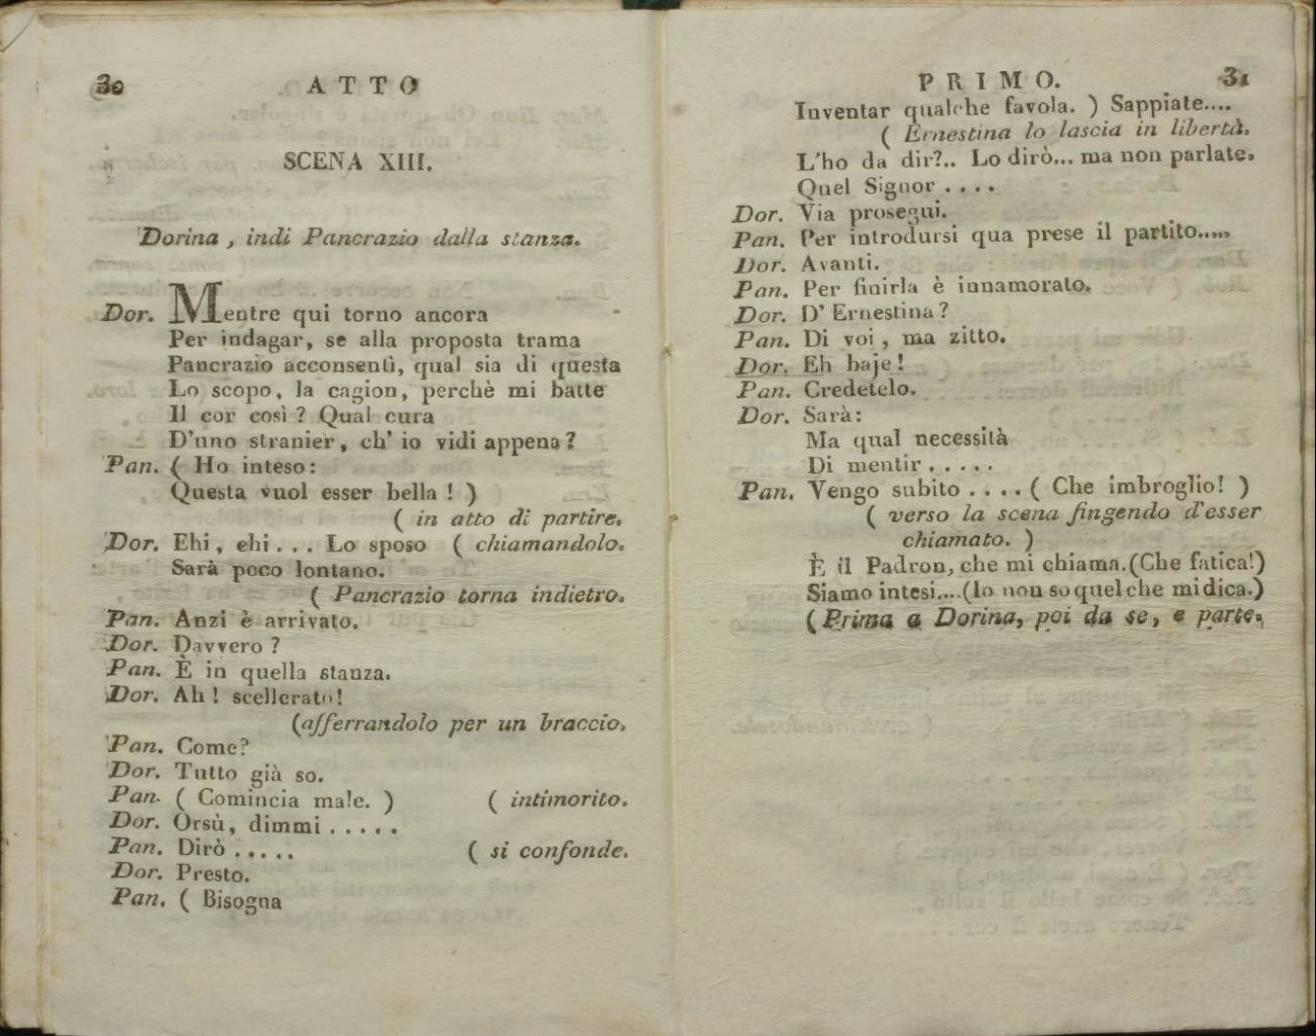 30 ATTO
SCENA XIII.
Dorina, indi Pancrazio dalla stanza.
Dor. Mentre qui torno ancora
Per indagar, se alla proposta trama
Pancrazio acconsentì, qual sia di questa
Lo scopo, la cagion, perchè mi batte
Il cor così? Qual cura
D'uno stranier, ch' io vidi appena?
Pan. ( Ho inteso:
Questa vuol esser bella! )
( in atto di partire.
Dor. Ehi, ehi... Lo sposo ( chiamandolo.
Sarà poco lontano.
( Pancrazio torna indietro.
Pan. Anzi è arrivato.
Dor. Davvero?
Pan. È in quella stanza.
Dor. Ah! scellerato!
(afferrandolo per un braccio.
Pan. Come?
Dor. Tutto già so.
Pan. ( Comincia male. ) ( intimorito.
Dor. Orsù, dimmi.....
Pan. Dirò..... ( si confonde.
Dor. Presto.
Pan. ( Bisogna
PRIMO. 31
Inventar qualche favola. ) Sappiate....
( Ernestina lo lascia in libertà.
L'ho da dir?.. Lo dirò... ma non parlate.
Quel Signor....
Dor. Via prosegui.
Pan. Per introdursi qua prese il partito.....
Dor. Avanti.
Pan. Per finirla è innamorato.
Dor. D' Ernestina?
Pan. Di voi, ma zitto.
Dor. Eh baje!
Pan. Credetelo.
Dor. Sarà:
Ma qual necessità
Di mentir.....
Pan. Vengo subito....( Che imbroglio! )
( verso la scena fingendo d'esser
chiamato. )
È il Padron, che mi chiama.(Che fatica!)
Siamo intesi....(Io non so quel che mi dica.)
(Prima a Dorina, poi da se, e parte.